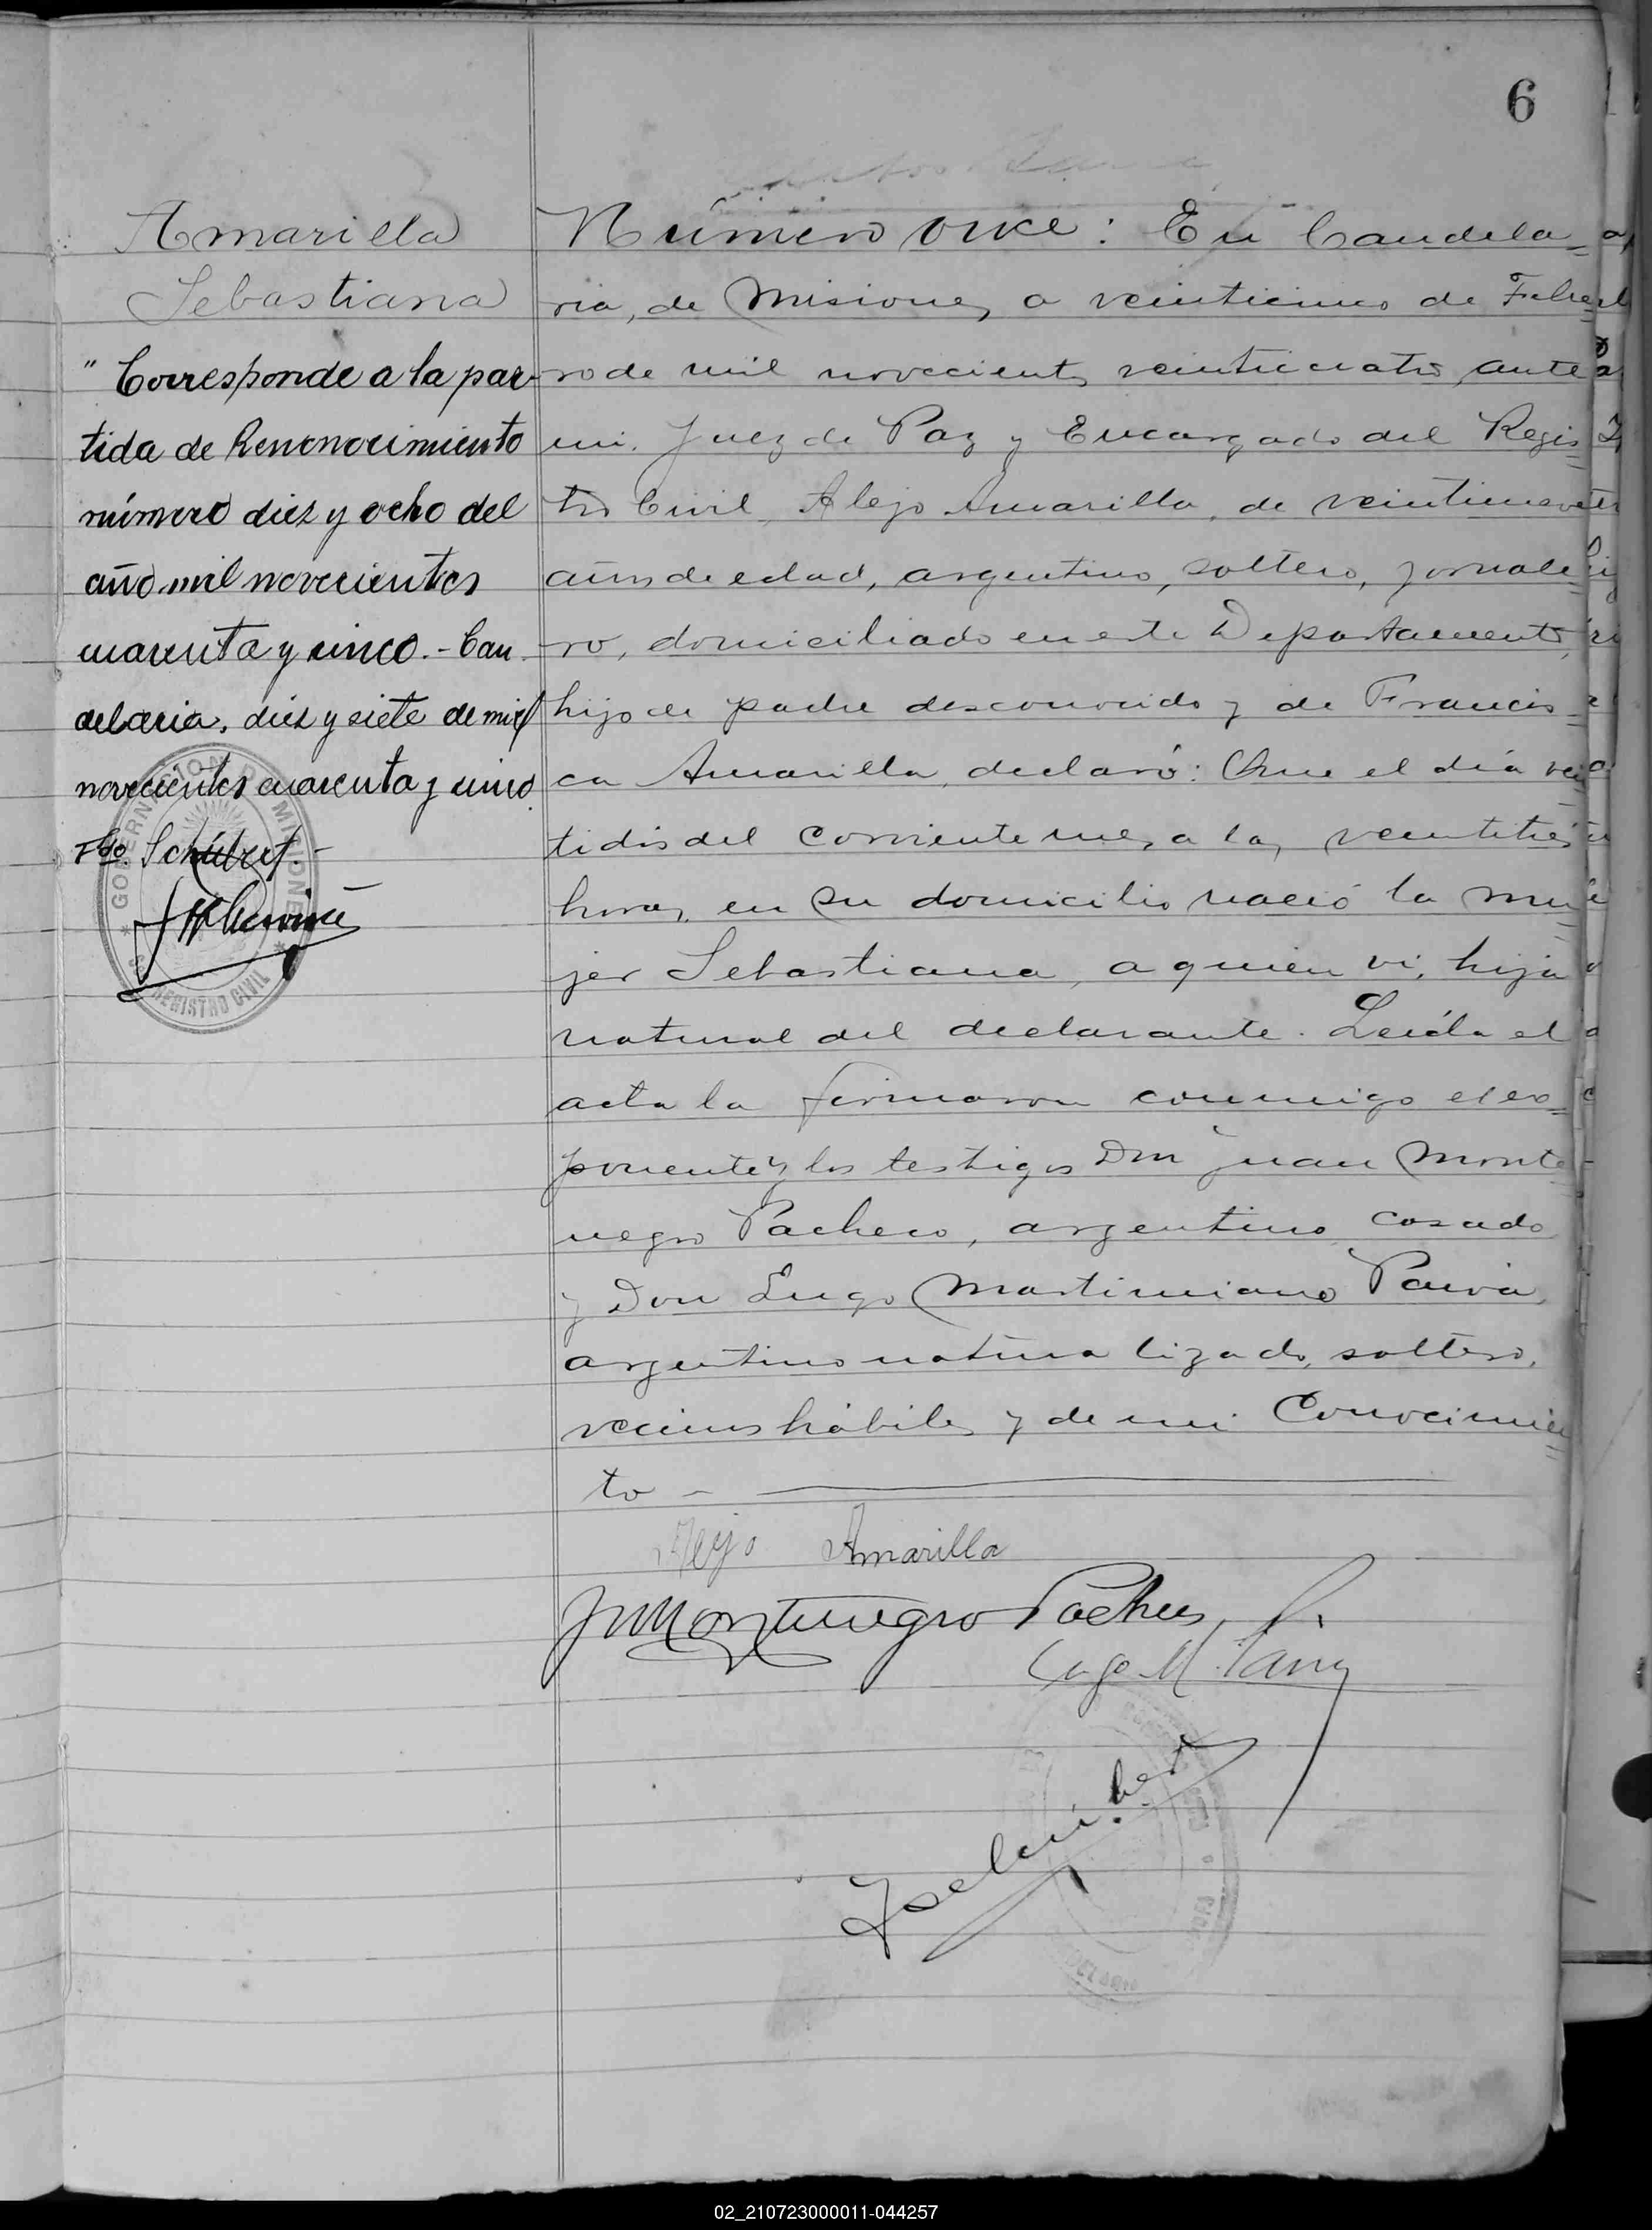 6
Amarilla
Sebastiana
"Corresponde a la par-
tida de Renonocimiento
número diez y ocho del
año mil novecientos
cuarenta y cinco.- Can
delaria, diez y siete de mil
novecientos cuarenta y cinco
Fdo.
GOBERNACION DE MISIONES
REGISTRO CIVIL
Número once: En Candela=
ria, de Misiones, a veinticinco de Febre=
ro de mil novecientos veinticuatro, ante
mi. Juez de Paz y Encargado del Regis=
tro Civil, Alejo Amarilla, de veintinueve
años de edad, argentino, soltero, jornale=
ro, domiciliado en este Departamento,
hijo de padre desconocido y de Francis=
ca Amarilla, declaró: Que el día vein
tidós del corriente mes, a las veintitrés
horas, en su domicilio nació la mu=
jer Sebastiana, a quien vi, hija
natural del declarante. Leída el
acta la firmaron conmigo el ex=
ponente y los testigos Don Juan Monte=
negro Pacheco, argentino, casado
y Don Lugo Martimiano Paiva,
argentino naturalizado, soltero,
vecinos hábiles y de mi Conocimien=
to -
Alejo Amarilla
JMontenegro Pacheco
02_210723000011-044257